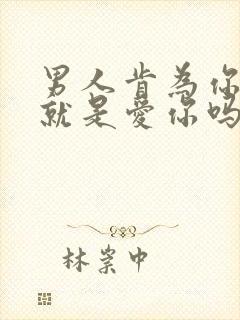 男人肯为你
就是爱你吗
林岽中